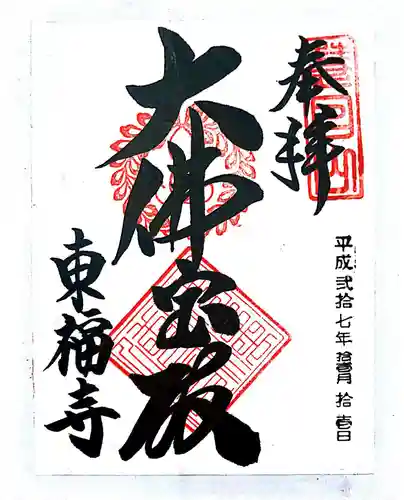 奉拝
平成弐拾七年拾壹月拾壹日
大佛宝殿
東福寺